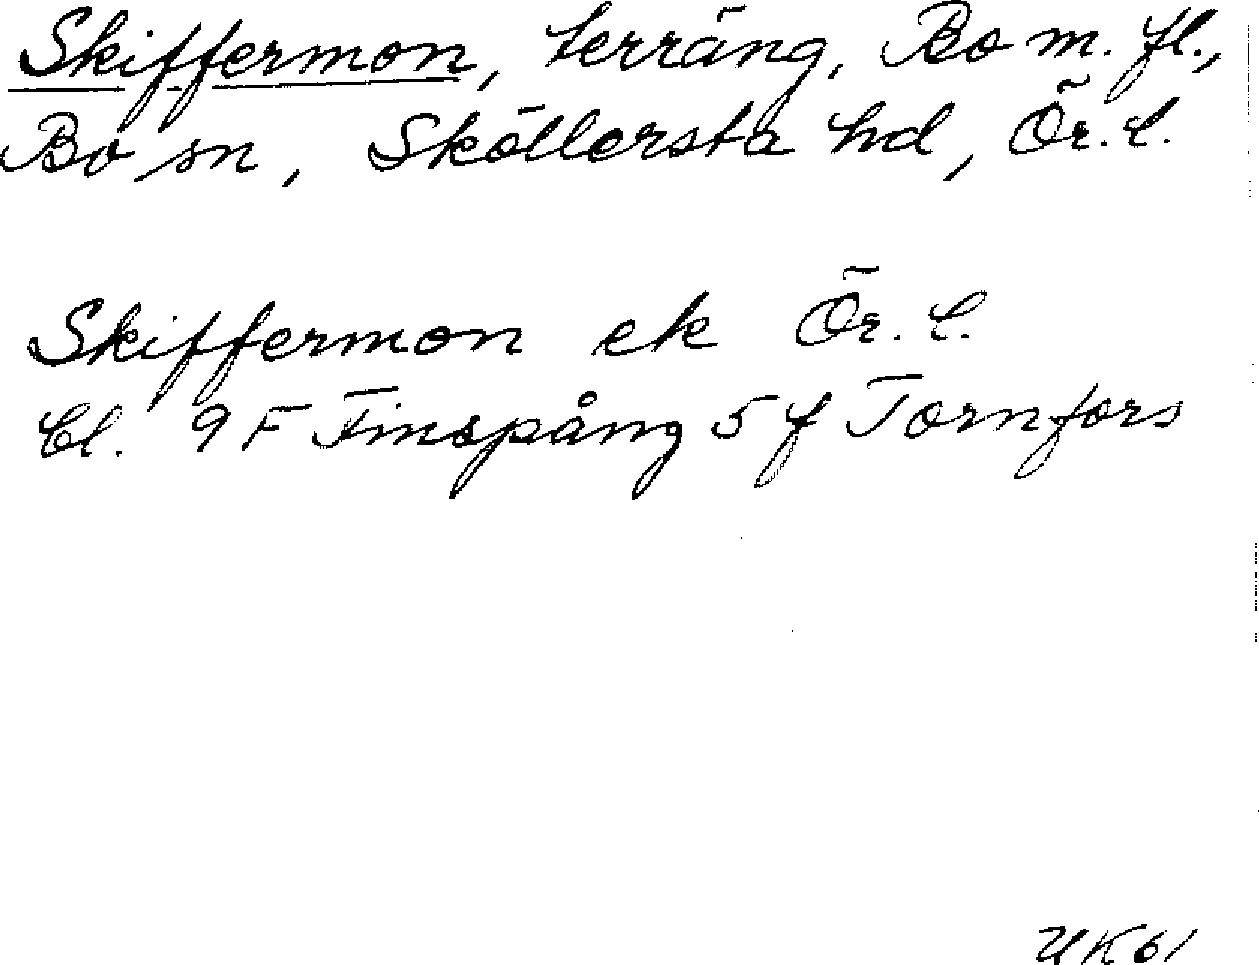 Skiffermon, terräng, Bo m. fl.,
Bo sn, Sköllersta hd, Ör. l.
Skiffermon ek Ör. l.
bl. 9 F Finspång 5 f Tornfors
UK 61